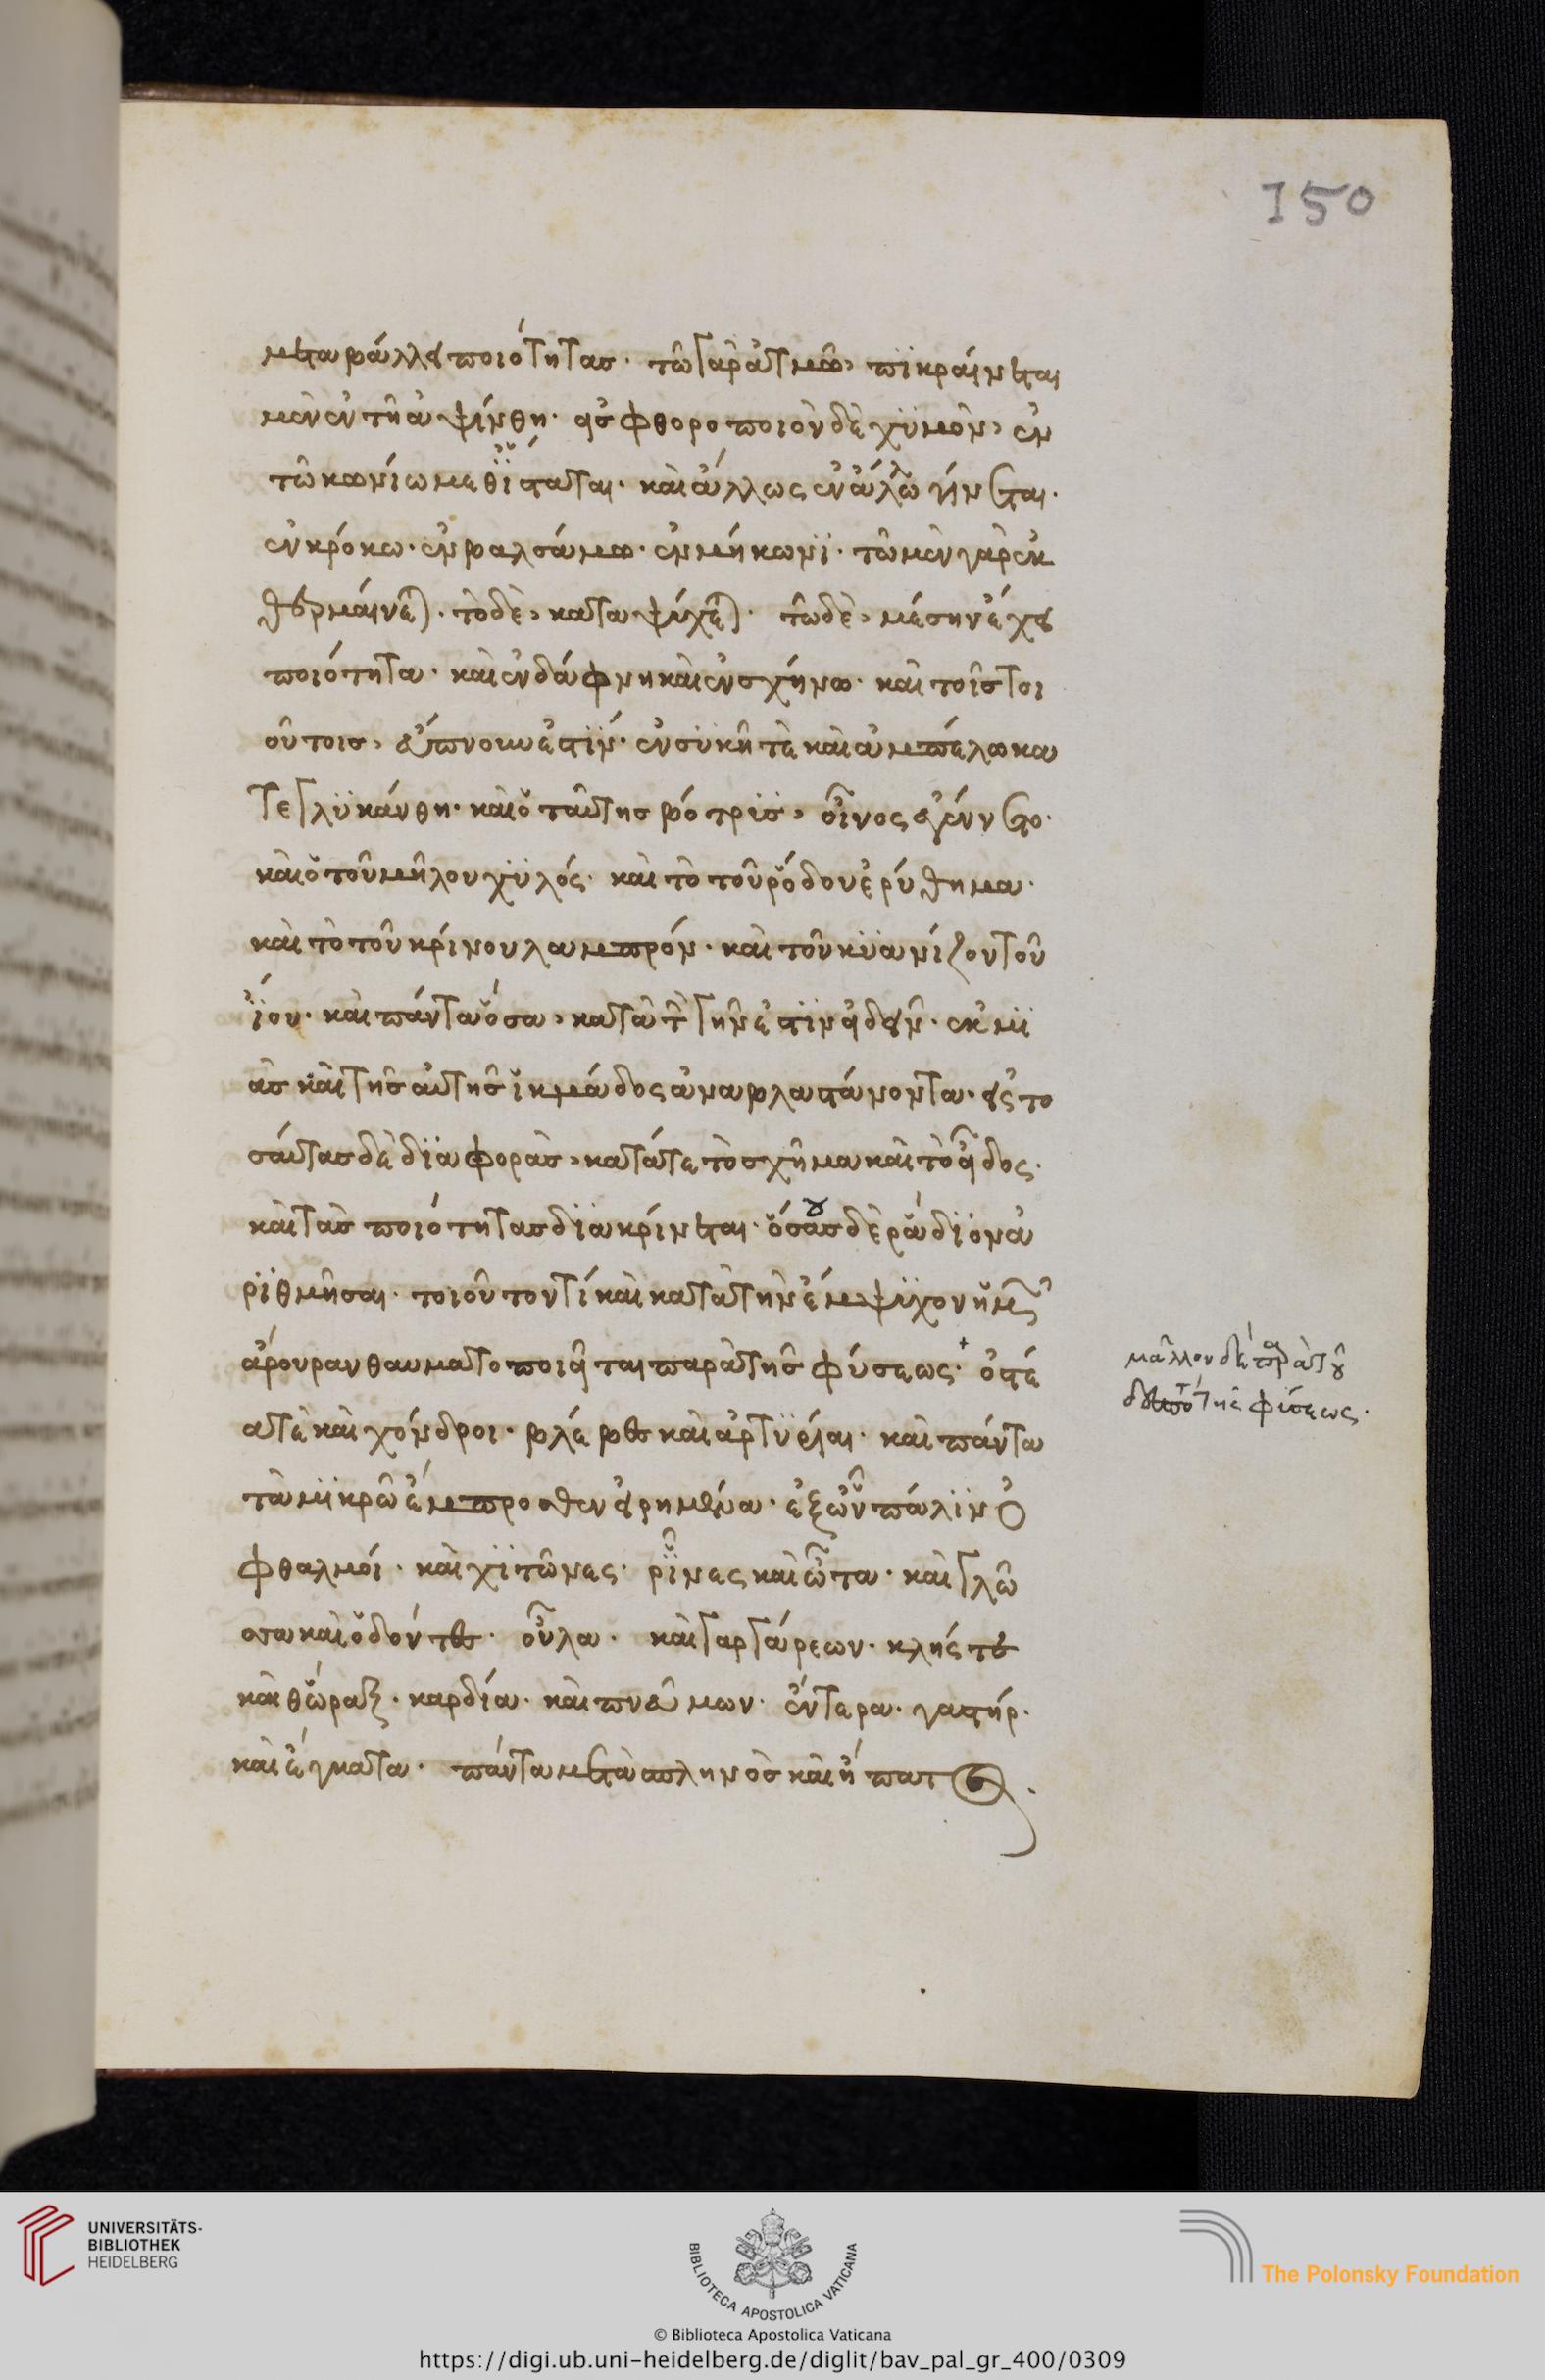 150
μεταβάλλει ποιότητας· τῶ γὰρ ἀτμῶ, πϊκραίνεται
μὲν ἐν τῆ ἀψίνθη· εἰς φθοροποιὸν δὲ χϋμὸν, ἐν
τῶ κωνίω μεθΐσταται· καὶ ἄλλως ἐν ἄλλω γίνεται·
ἐν κρόκω· ἐν βαλσάμω· ἐν μήκωνϊ· τῶ μὲν γὰρ ἐκ
θερμαίνεται· τὸ δὲ, καταψύχεται· τῶ δὲ, μέσην ἔχει
ποιότητα· καὶ ἐν δάφνη καὶ ἐν σχήνω· καὶ τοῖς τοι
ούτοις, εὔπνουν ἐστϊν· ἐν σϋκῆ τὲ καὶ ἀμπέλω κα
τεγλϋκάνθη· καὶ ὁ ταύτης βότρϋς, οἶνος ἐγένετο·
καὶ ὁ τοῦ μήλου χϋλός· καὶ τὸ τοῦ ῥόδου ἐρύθημα·
καὶ τὸ τοῦ κρίνου λαμπρόν· καὶ τοῦ κϋανίζον τοῦ
ἴου· καὶ πάντα ὅσα, κατὰ τ γῆν ἐστϊν ἰδεῖν· ἐκ μϊ
ᾶς καὶ τῆς αὐτῆς ἰκμάδος ἀναβλαστάνοντα· εἰς το
σαύτας δὲ δϊαφορὰς, κατά τε τὸ σχῆμα καὶ τὸ εἶδος·
καὶ τὰς ποιότητας δϊακρίνεται· ὅσας δὲ ῥάδϊον ἀ
ρϊθμῆσαι· τοιοῦτον τί καὶ κατὰ τὴν ἔμψϋχον ἡμῶν
ἄρουραν θαυματοποιεῖται παρὰ τῆς φύσεως· ὀστέ
α τὲ καὶ χόνδροι· φλέβες καὶ ἀρτϋρίαι· καὶ πάντα
τὰ μϊκρῶ ἔμπροσθεν εἰρημένα· ἐξ ὧν πάλϊν ὀ
φθαλμοί· καὶ χϊτῶνες· ῥῖνες καὶ ὦτα· καὶ γλῶ
σσα καὶ ὀδόντες· οὖλα· καὶ γαργάρεων· κλής τε
καὶ θώραξ· καρδία· καὶ πνεύμων· ἔντερα· γαστήρ·
καὶ ἔγκατα· πάντα μετὰ σπληνὸς καὶ ἥπατος·
μᾶλλον δὲ παρὰ τοῦ
δεσπότου τῆς φύσεως·
UNIVERSITÄTS-
BIBLIOTHEK
HEIDELBERG
BIBLIOTECA APOSTOLICA VATICANA
The Polonsky Foundation
© Biblioteca Apostolica Vaticana
https://digi.ub.uni-heidelberg.de/diglit/bav_pal_gr_400/0309